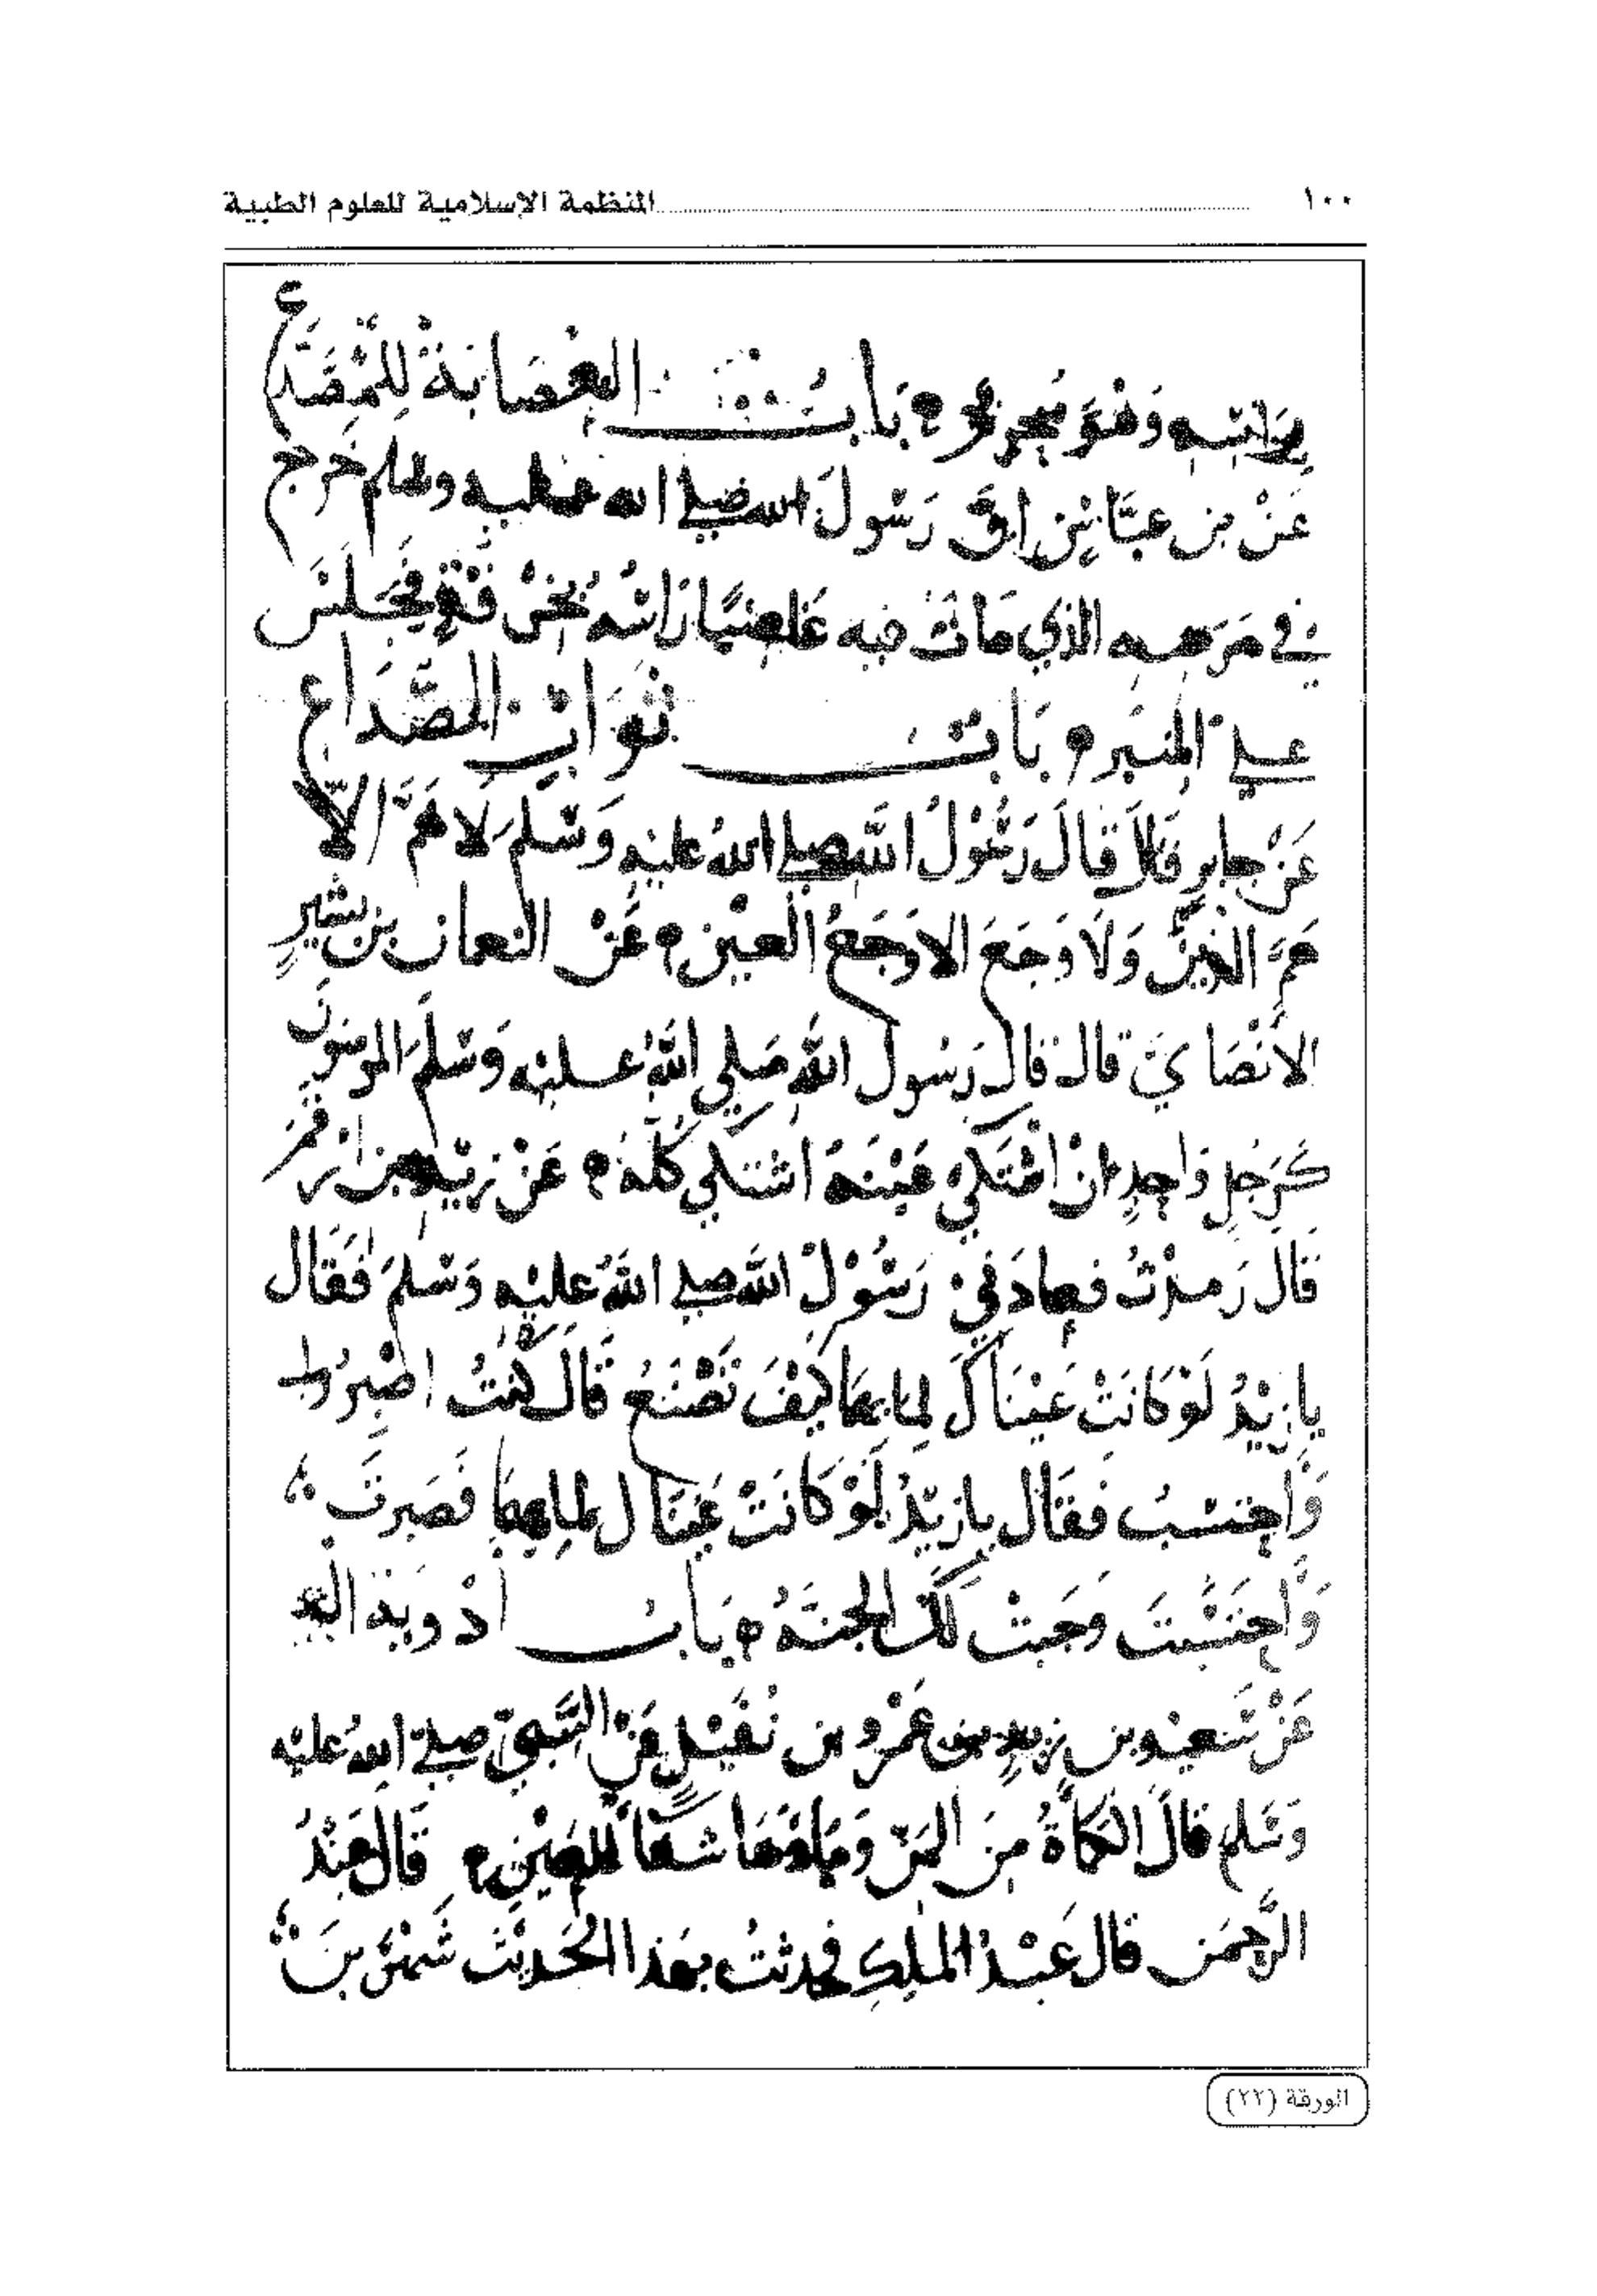 ١٠٠ المنظمة الإسلامية للعلوم الطبية
برأسه وهو محرم باب العصابة للمصدع
عن بن عباس ان رسول الله صلى الله عليه وسلم خرج
في مرضه الذي مات فيه عاصبا راسه بخرقة فجلس
على المنبر باب ثواب الصداع
عن جابر قال قال رسول الله صلى الله عليه وسلم لا هم الا
هم الدين ولا وجع الا وجع العين عن النعمان بن بشير
الانصاي قال قال رسول الله صلى الله عليه وسلم المومنون
كرجل واحد ان اشتكى عينه اشتكى كله عن زيد بن ارقم
قال رمدت فعادني رسول الله صلى الله عليه وسلم فقال
يا زيد لو كانت عيناك لما بها كيف تصنع قال كنت اصبر
واحتسب فقال يا زيد لو كانت عيناك لما بهما فصبرت
واحتسبت وجبت لك الجنة باب ادوية
عن سعيد بن زيد بن عمرو بن نفيل عن النبي صلى الله عليه
وسلم قال الكمأة من المن وماوها شفا للعين قال عبد
الرحمن قال عبد الملك فحدثت بهذا الحديث شهر بن
الورقة (٢٢)